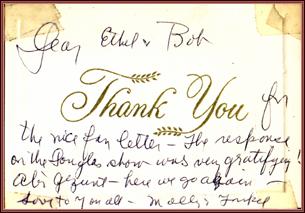 Dear Ethel & Bob
Thank You for
the nice fan letter – The response
on the Douglas show was very gratifying!
Abi Gezunt – here we go again –
Love to you all –